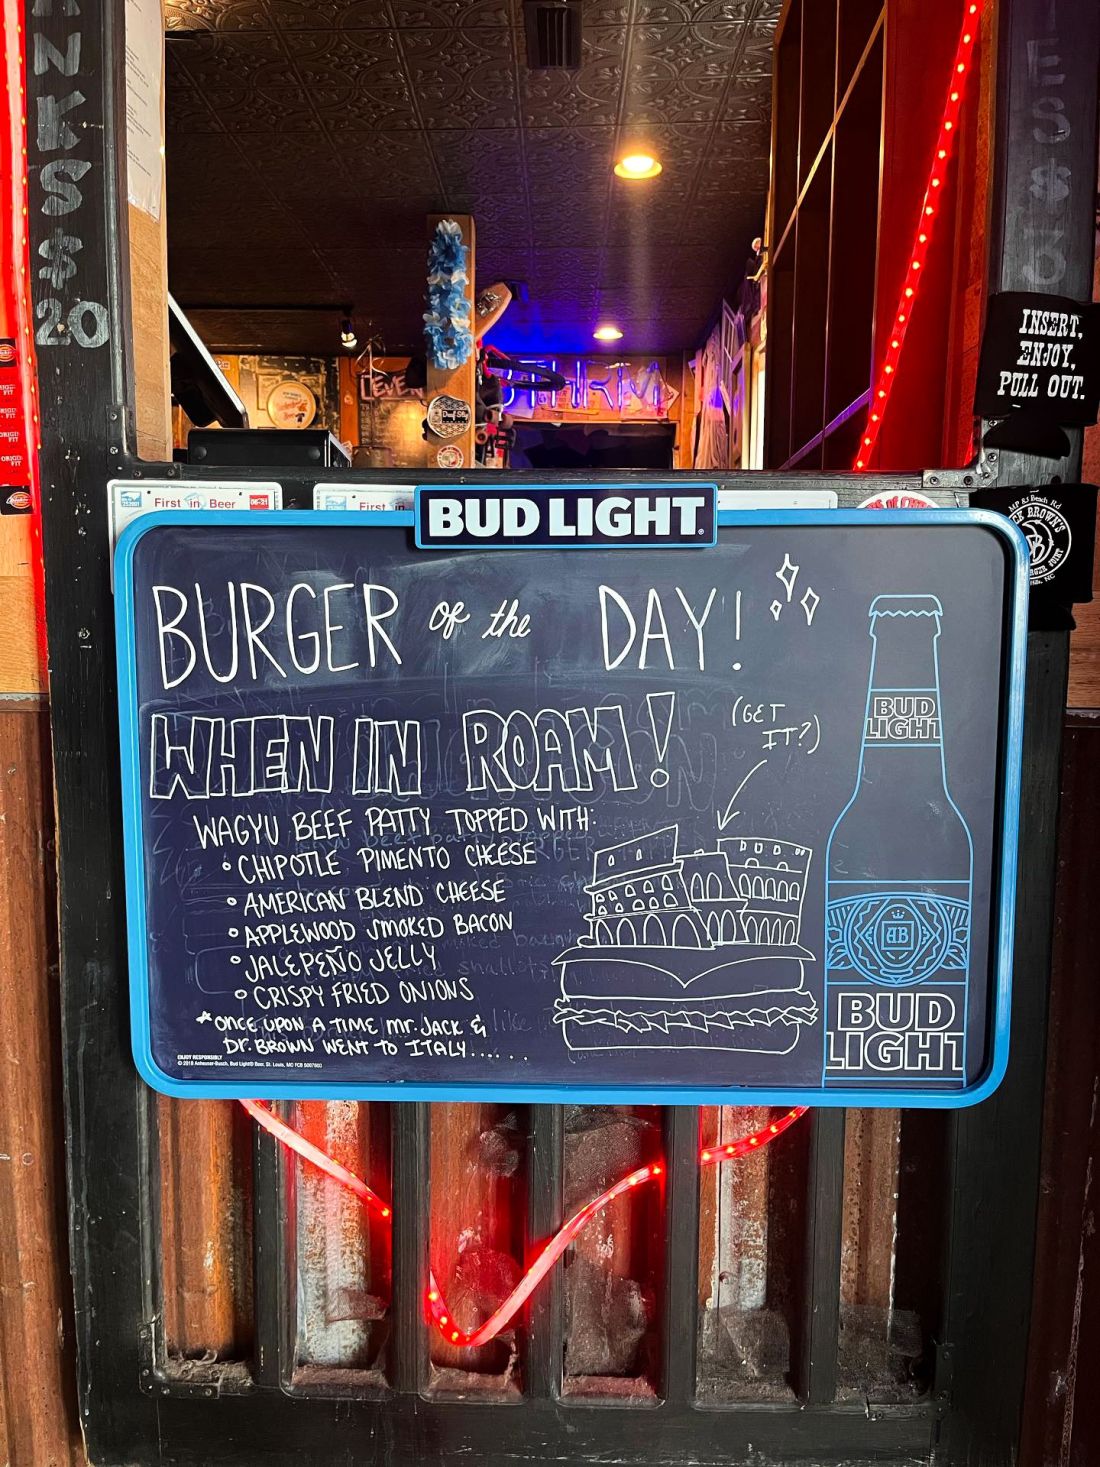 NKS $20
ES $3
INSERT,
ENJOY,
PULL OUT.
First in Beer
06-21
First in
BUD LIGHT
BURGER of the DAY!
WHEN IN ROAM!
(GET
IT?)
WAGYU BEEF PATTY TOPPED WITH:
• CHIPOTLE PIMENTO CHEESE
• AMERICAN BLEND CHEESE
• APPLEWOOD SMOKED BACON
• JALEPEÑO JELLY
• CRISPY FRIED ONIONS
*ONCE UPON A TIME MR. JACK &
DR. BROWN WENT TO ITALY......
BUD
LIGHT
AB
BUD
LIGHT
ENJOY RESPONSIBLY
© 2018 Anheuser-Busch, Bud Light® Beer, St. Louis, MO